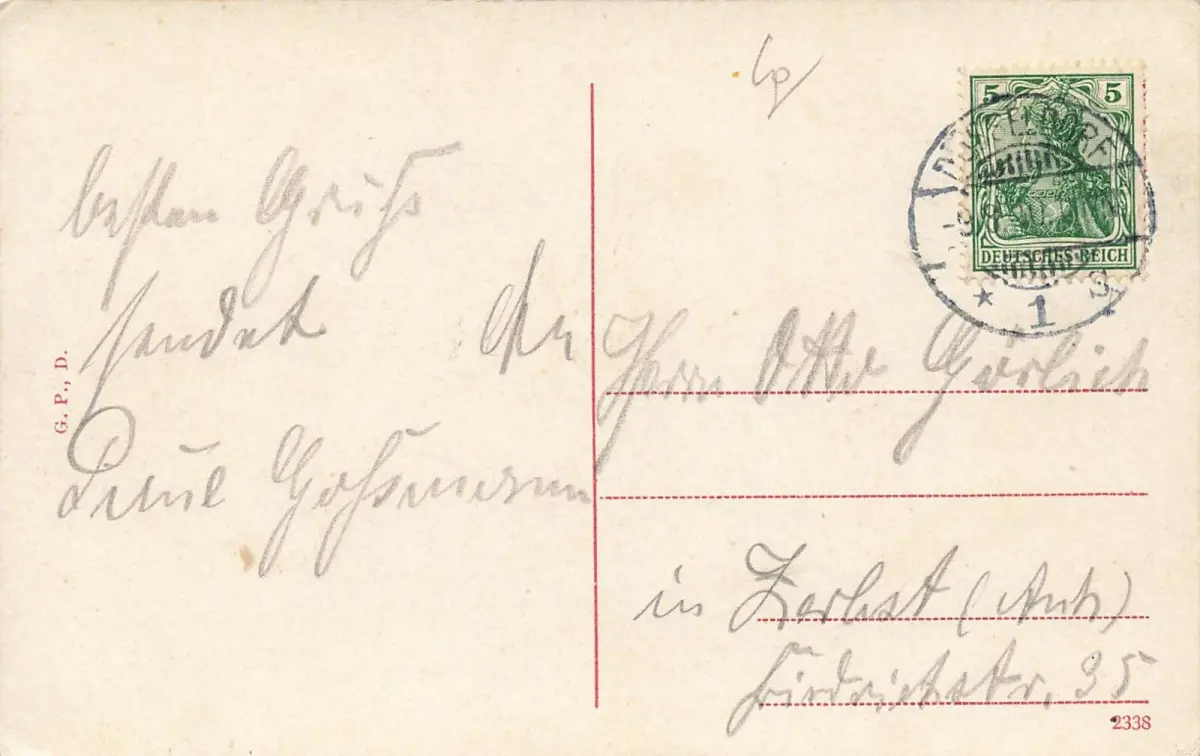 besten Gruß
sendet
Paul Goßmann
G. P., D.
5 5
DEUTSCHES REICH
DÜSSELDORF
* 1 S
An Herrn Otto Görlich
in Zerbst (Anh)
Friedrichstr. 35
2338